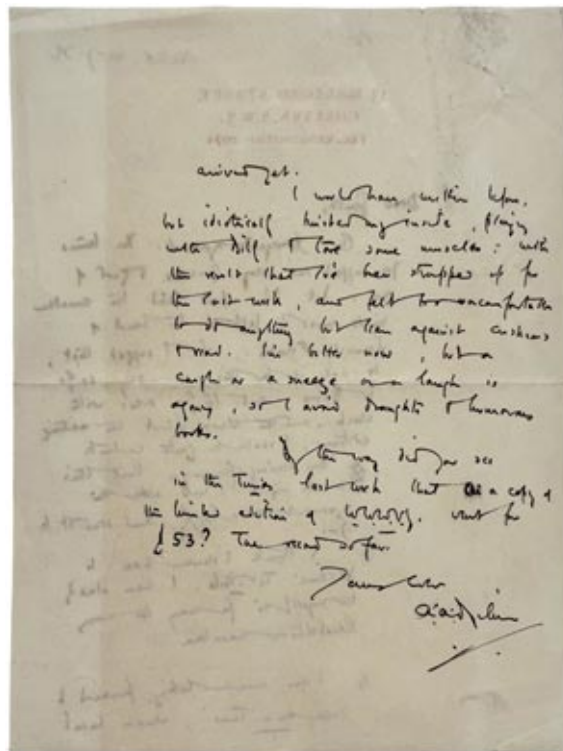 arrived yet.
I would have written before,
but idiotically twisted my inside, playing
with Billy & tore some muscles: with
the result that I've been strapped up for
the last week, and felt too uncomfortable
to do anything but lean against cushions
& read. I'm better now, but a
cough or a sneeze or a laugh is
agony, so I avoid draughts & humorous
books.
By the way did you see
in the Times last week that a copy of
the limited edition of W.W.W.V.Y. went for
£53? The record so far.
Yours ever
A.A. Milne